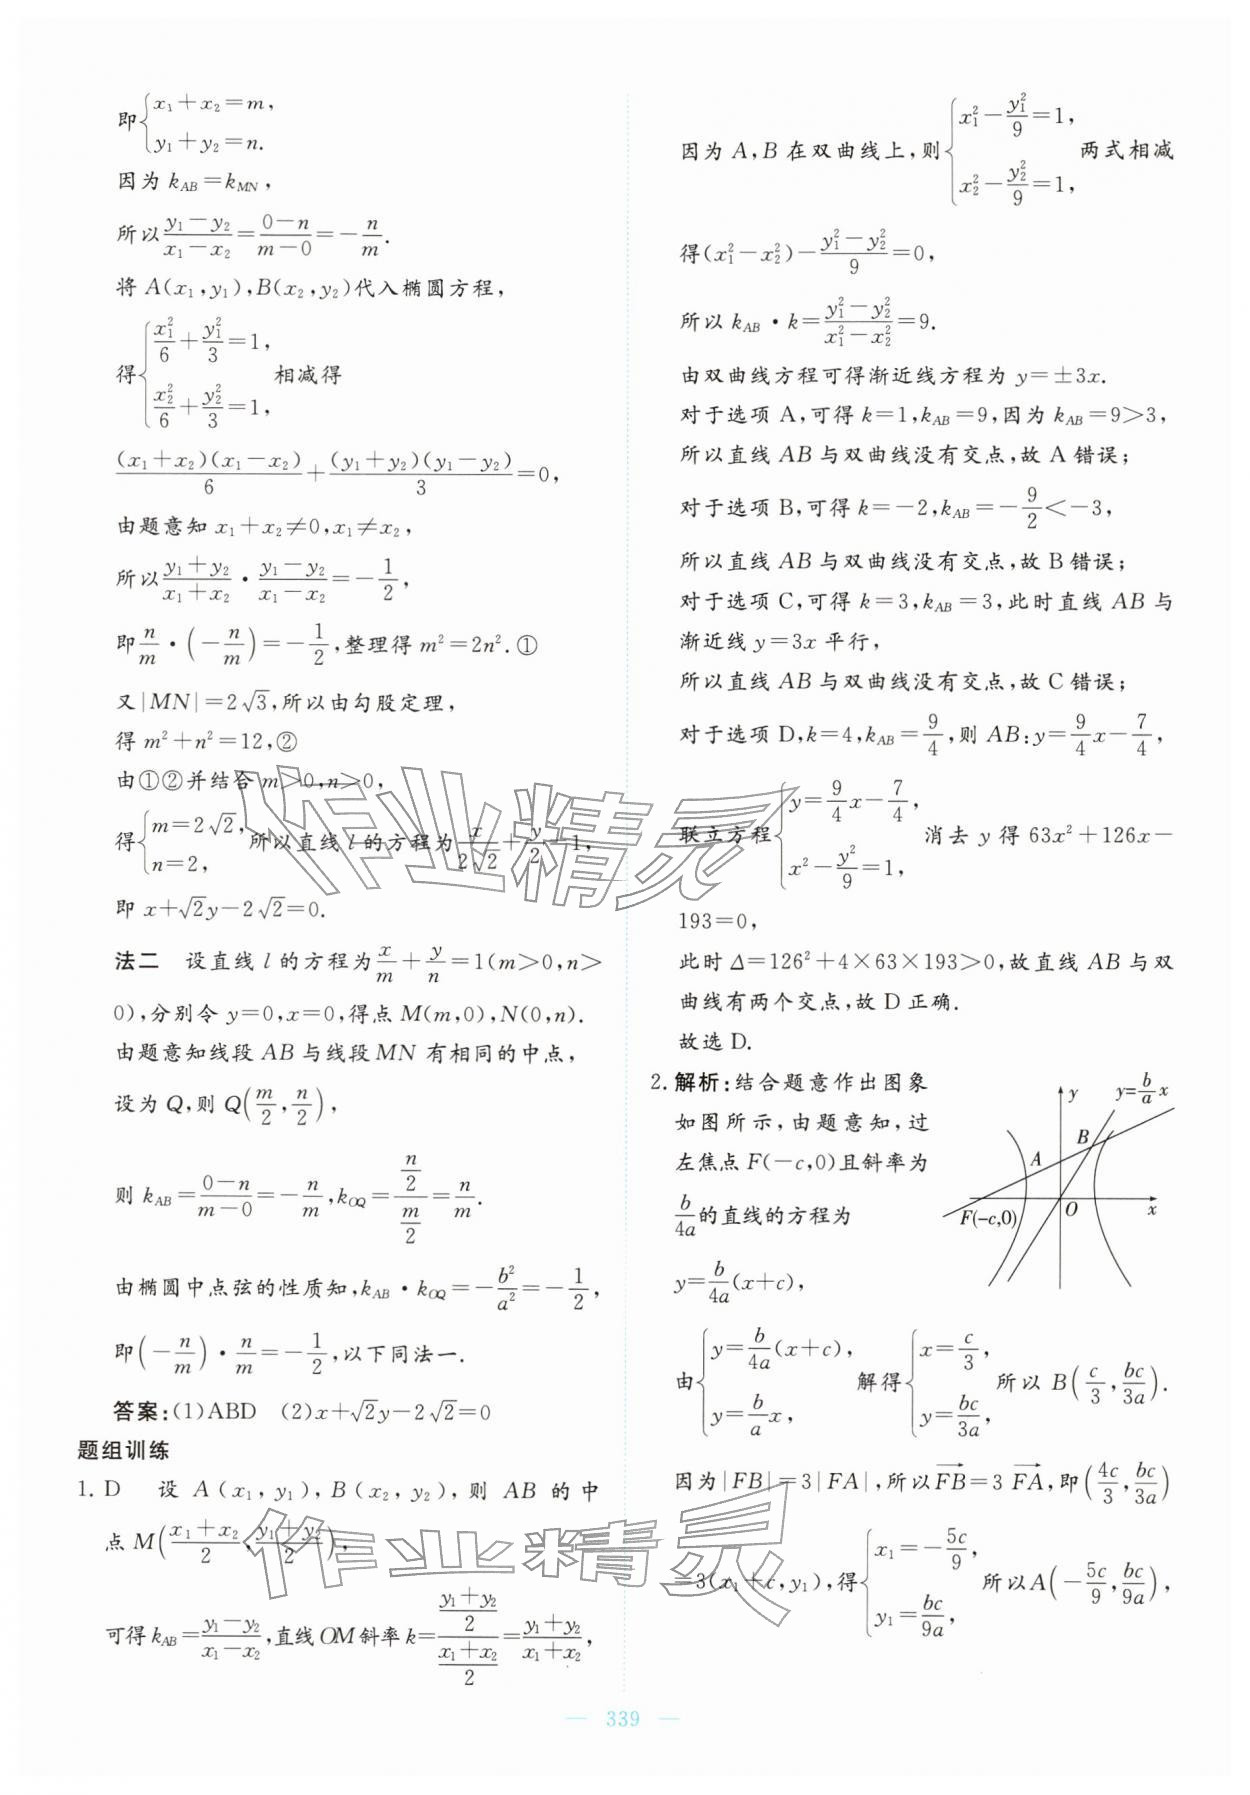 即{x₁+x₂=m,
y₁+y₂=n.
因为 k_AB=k_MN,
所以(y₁-y₂)/(x₁-x₂)=(0-n)/(m-0)=-n/m.
将 A(x₁,y₁),B(x₂,y₂)代入椭圆方程,
得{x₁²/6+y₁²/3=1,
x₂²/6+y₂²/3=1, 相减得
(x₁+x₂)(x₁-x₂)/6+(y₁+y₂)(y₁-y₂)/3=0,
由题意知 x₁+x₂≠0,x₁≠x₂,
所以(y₁+y₂)/(x₁+x₂)·(y₁-y₂)/(x₁-x₂)=-1/2,
即n/m·(-n/m)=-1/2,整理得 m²=2n².①
又|MN|=2√3,所以由勾股定理,
得 m²+n²=12,②
由①②并结合 m>0,n>0,
得{m=2√2,
n=2, 所以直线 l 的方程为x/(2√2)+y/2=1,
即 x+√2y-2√2=0.
法二 设直线 l 的方程为x/m+y/n=1(m>0,n>
0),分别令 y=0,x=0,得点 M(m,0),N(0,n).
由题意知线段 AB 与线段 MN 有相同的中点,
设为 Q,则 Q(m/2,n/2),
则 k_AB=(0-n)/(m-0)=-n/m,k_OQ=(n/2)/(m/2)=n/m.
由椭圆中点弦的性质知,k_AB·k_OQ=-b²/a²=-1/2,
即(-n/m)·n/m=-1/2,以下同法一.
答案:(1)ABD (2)x+√2y-2√2=0
题组训练
1. D 设 A(x₁,y₁),B(x₂,y₂),则 AB 的中
点 M((x₁+x₂)/2,(y₁+y₂)/2),
可得 k_AB=(y₁-y₂)/(x₁-x₂),直线 OM 斜率 k=((y₁+y₂)/2)/((x₁+x₂)/2)=(y₁+y₂)/(x₁+x₂),
因为 A,B 在双曲线上,则{x₁²-y₁²/9=1,
x₂²-y₂²/9=1, 两式相减
得(x₁²-x₂²)-(y₁²-y₂²)/9=0,
所以 k_AB·k=(y₁²-y₂²)/(x₁²-x₂²)=9.
由双曲线方程可得渐近线方程为 y=±3x.
对于选项 A,可得 k=1,k_AB=9,因为 k_AB=9>3,
所以直线 AB 与双曲线没有交点,故 A 错误;
对于选项 B,可得 k=-2,k_AB=-9/2<-3,
所以直线 AB 与双曲线没有交点,故 B 错误;
对于选项 C,可得 k=3,k_AB=3,此时直线 AB 与
渐近线 y=3x 平行,
所以直线 AB 与双曲线没有交点,故 C 错误;
对于选项 D,k=4,k_AB=9/4,则 AB:y=9/4x-7/4,
联立方程{y=9/4x-7/4,
x²-y²/9=1, 消去 y 得 63x²+126x-
193=0,
此时 Δ=126²+4×63×193>0,故直线 AB 与双
曲线有两个交点,故 D 正确.
故选 D.
2. 解析:结合题意作出图象
如图所示,由题意知,过
左焦点 F(-c,0)且斜率为
b/4a的直线的方程为
y=b/4a(x+c),
y y=b/a x
A B
F(-c,0) O x
由{y=b/4a(x+c),
y=b/a x, 解得{x=c/3,
y=bc/3a, 所以 B(c/3,bc/3a).
因为|FB|=3|FA|,所以→FB=3→FA,即(4c/3,bc/3a)
=3(x₁+c,y₁),得{x₁=-5c/9,
y₁=bc/9a, 所以A(-5c/9,bc/9a),
— 339 —
作业精灵
作业精灵